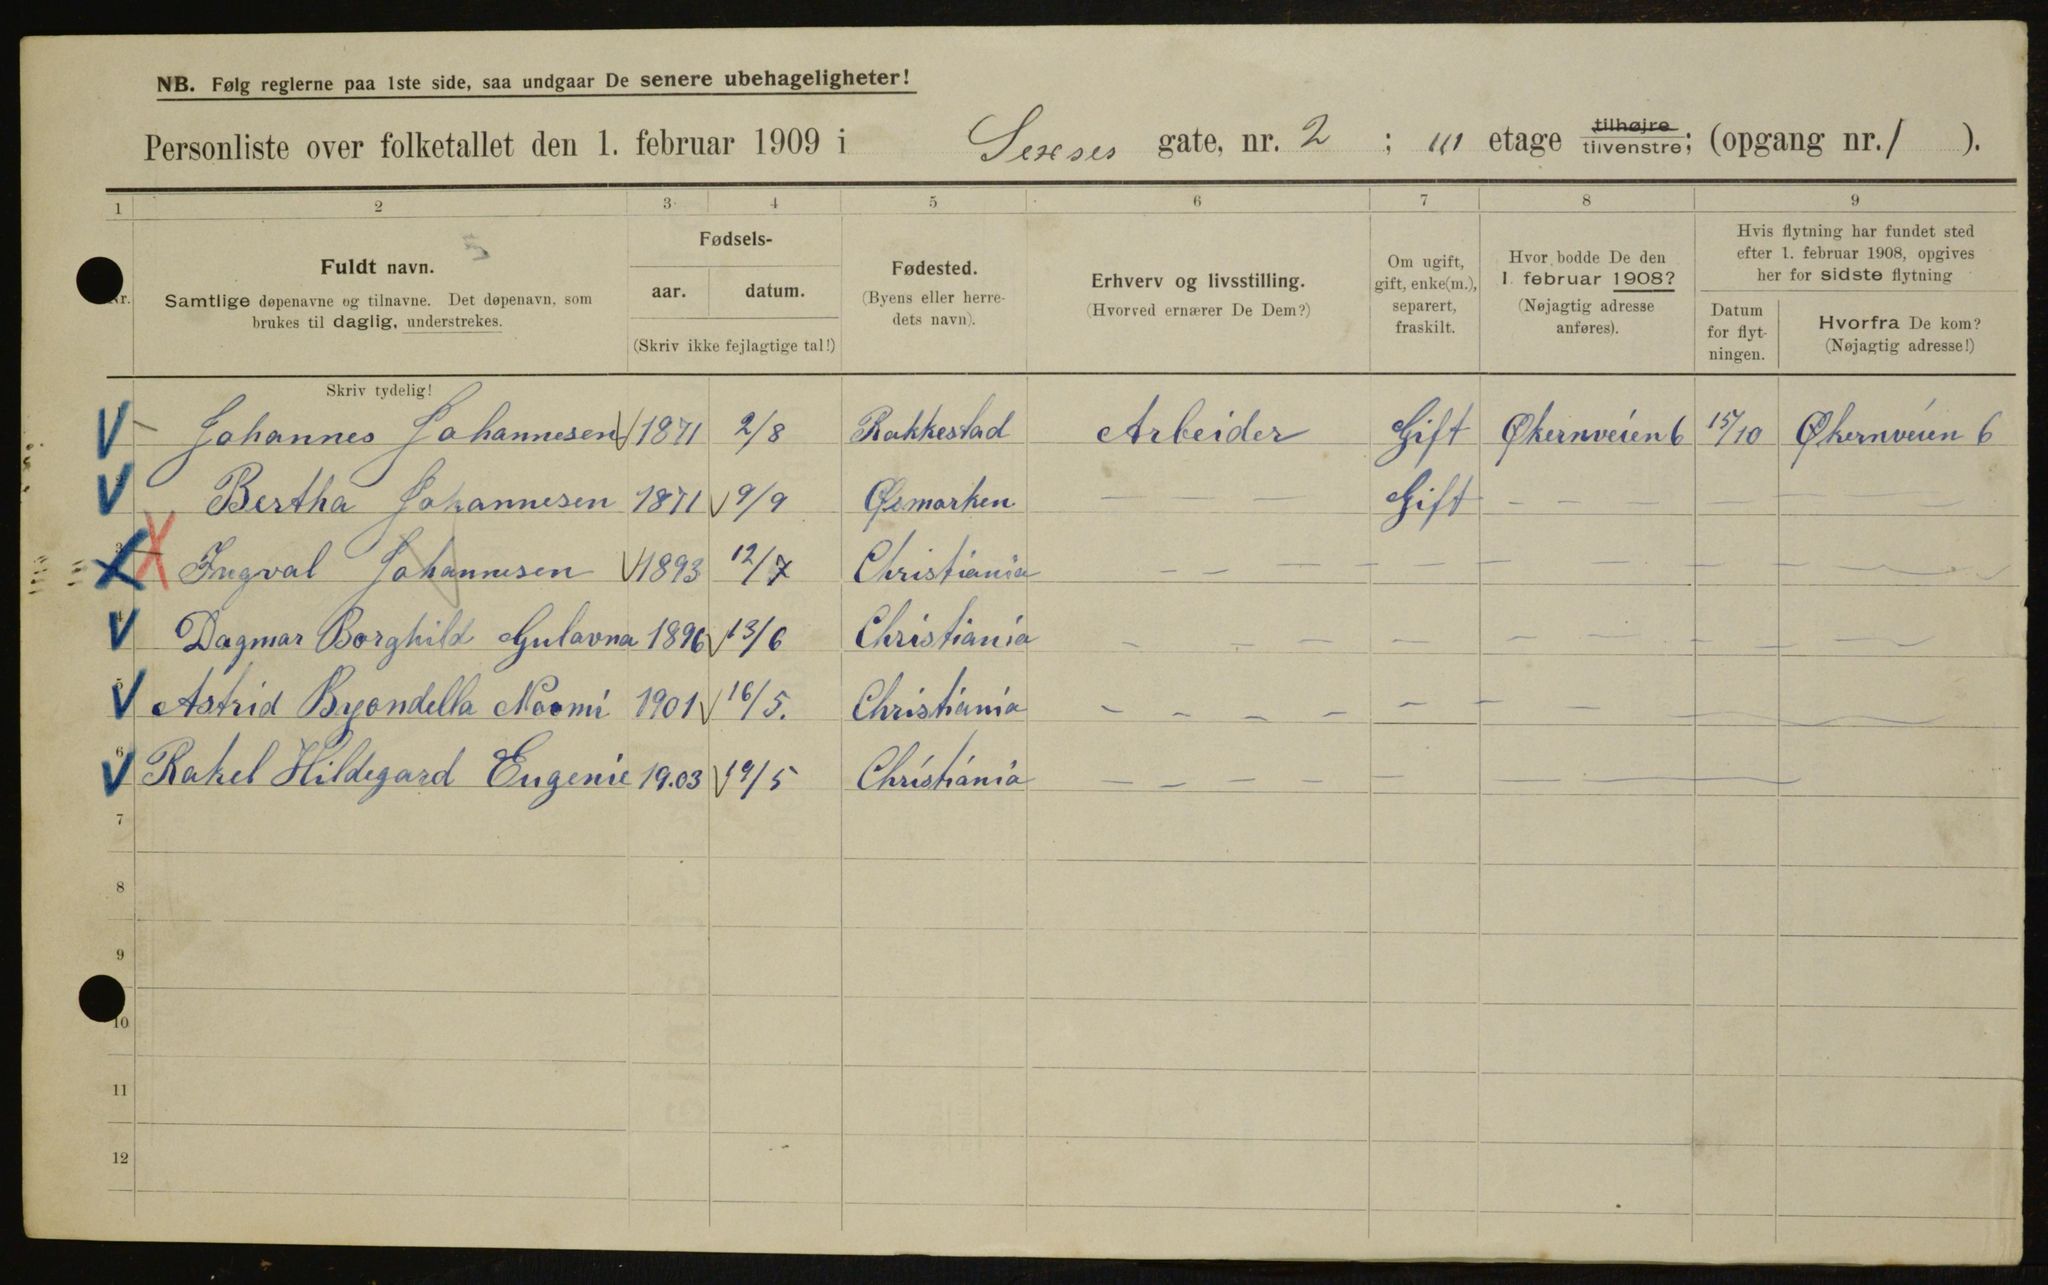 NB. Følg reglerne paa 1ste side, saa undgaar De senere ubehageligheter!
Personliste over folketallet den 1. februar 1909 i Sexses gate, nr. 2 ; III etage tilhøjre tilvenstre; (opgang nr. / ).
1 2 3 4 5 6 7 8 9
Nr.
Fuldt navn.
Samtlige døpenavne og tilnavne. Det døpenavn, som
brukes til daglig, understrekes.
Skriv tydelig!
Fødsels-
aar. datum.
(Skriv ikke fejlagtige tal!)
Fødested.
(Byens eller herre-
dets navn).
Erhverv og livsstilling.
(Hvorved ernærer De Dem?)
Om ugift,
gift, enke(m.),
separert,
fraskilt.
Hvor bodde De den
1. februar 1908?
(Nøjagtig adresse
anføres).
Hvis flytning har fundet sted
efter 1. februar 1908, opgives
her for sidste flytning
Datum
for flyt-
ningen.
Hvorfra De kom?
(Nøjagtig adresse!)
Johannes Johannesen 1871 2/8 Rakkestad Arbeider Gift Økernveien 6 15/10 Økernveien 6
Bertha Johannesen 1871 9/9 Øsmarken — — — Gift — — — — — —
3 Ingval Johannesen 1893 12/7 Christiania — — — — — — — — —
4 Dagmar Borghild Gulavna 1896 13/6 Christiania — — — — — — — — —
5 Astrid Byondella Noomi 1901 16/5. Christiania — — — — — — — —
6 Rakel Hildegard Eugenie 19.03 19/5 Christiania — — — — — —
7
8
9
10
11
12